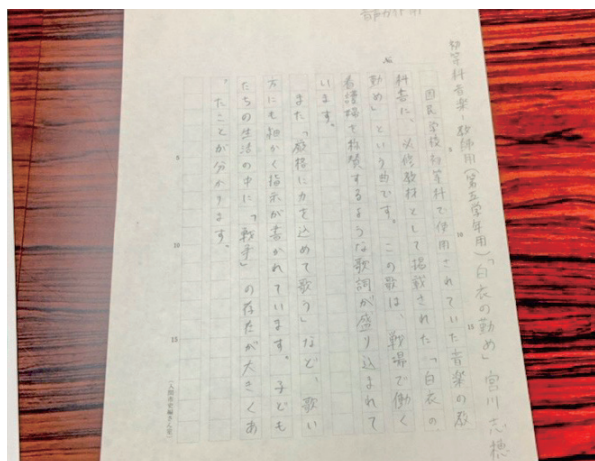 音声ガイド用
初等科音楽一教師用(第五学年用)「白衣の勤め」宮川志穂
国民学校初等科で使用されていた音楽の教
科書に、必修教材として掲載された「白衣の
勤め」という曲です。この歌は、戦場で働く
看護婦を称賛するような歌詞が盛り込まれて
います。
また「厳格に力を込めて歌う」など、歌い
方にも細かく指示が書かれています。子ども
たちの生活の中に「戦争」の存在が大きくあ
ったことが分かります。
5
10
15
5
10
15